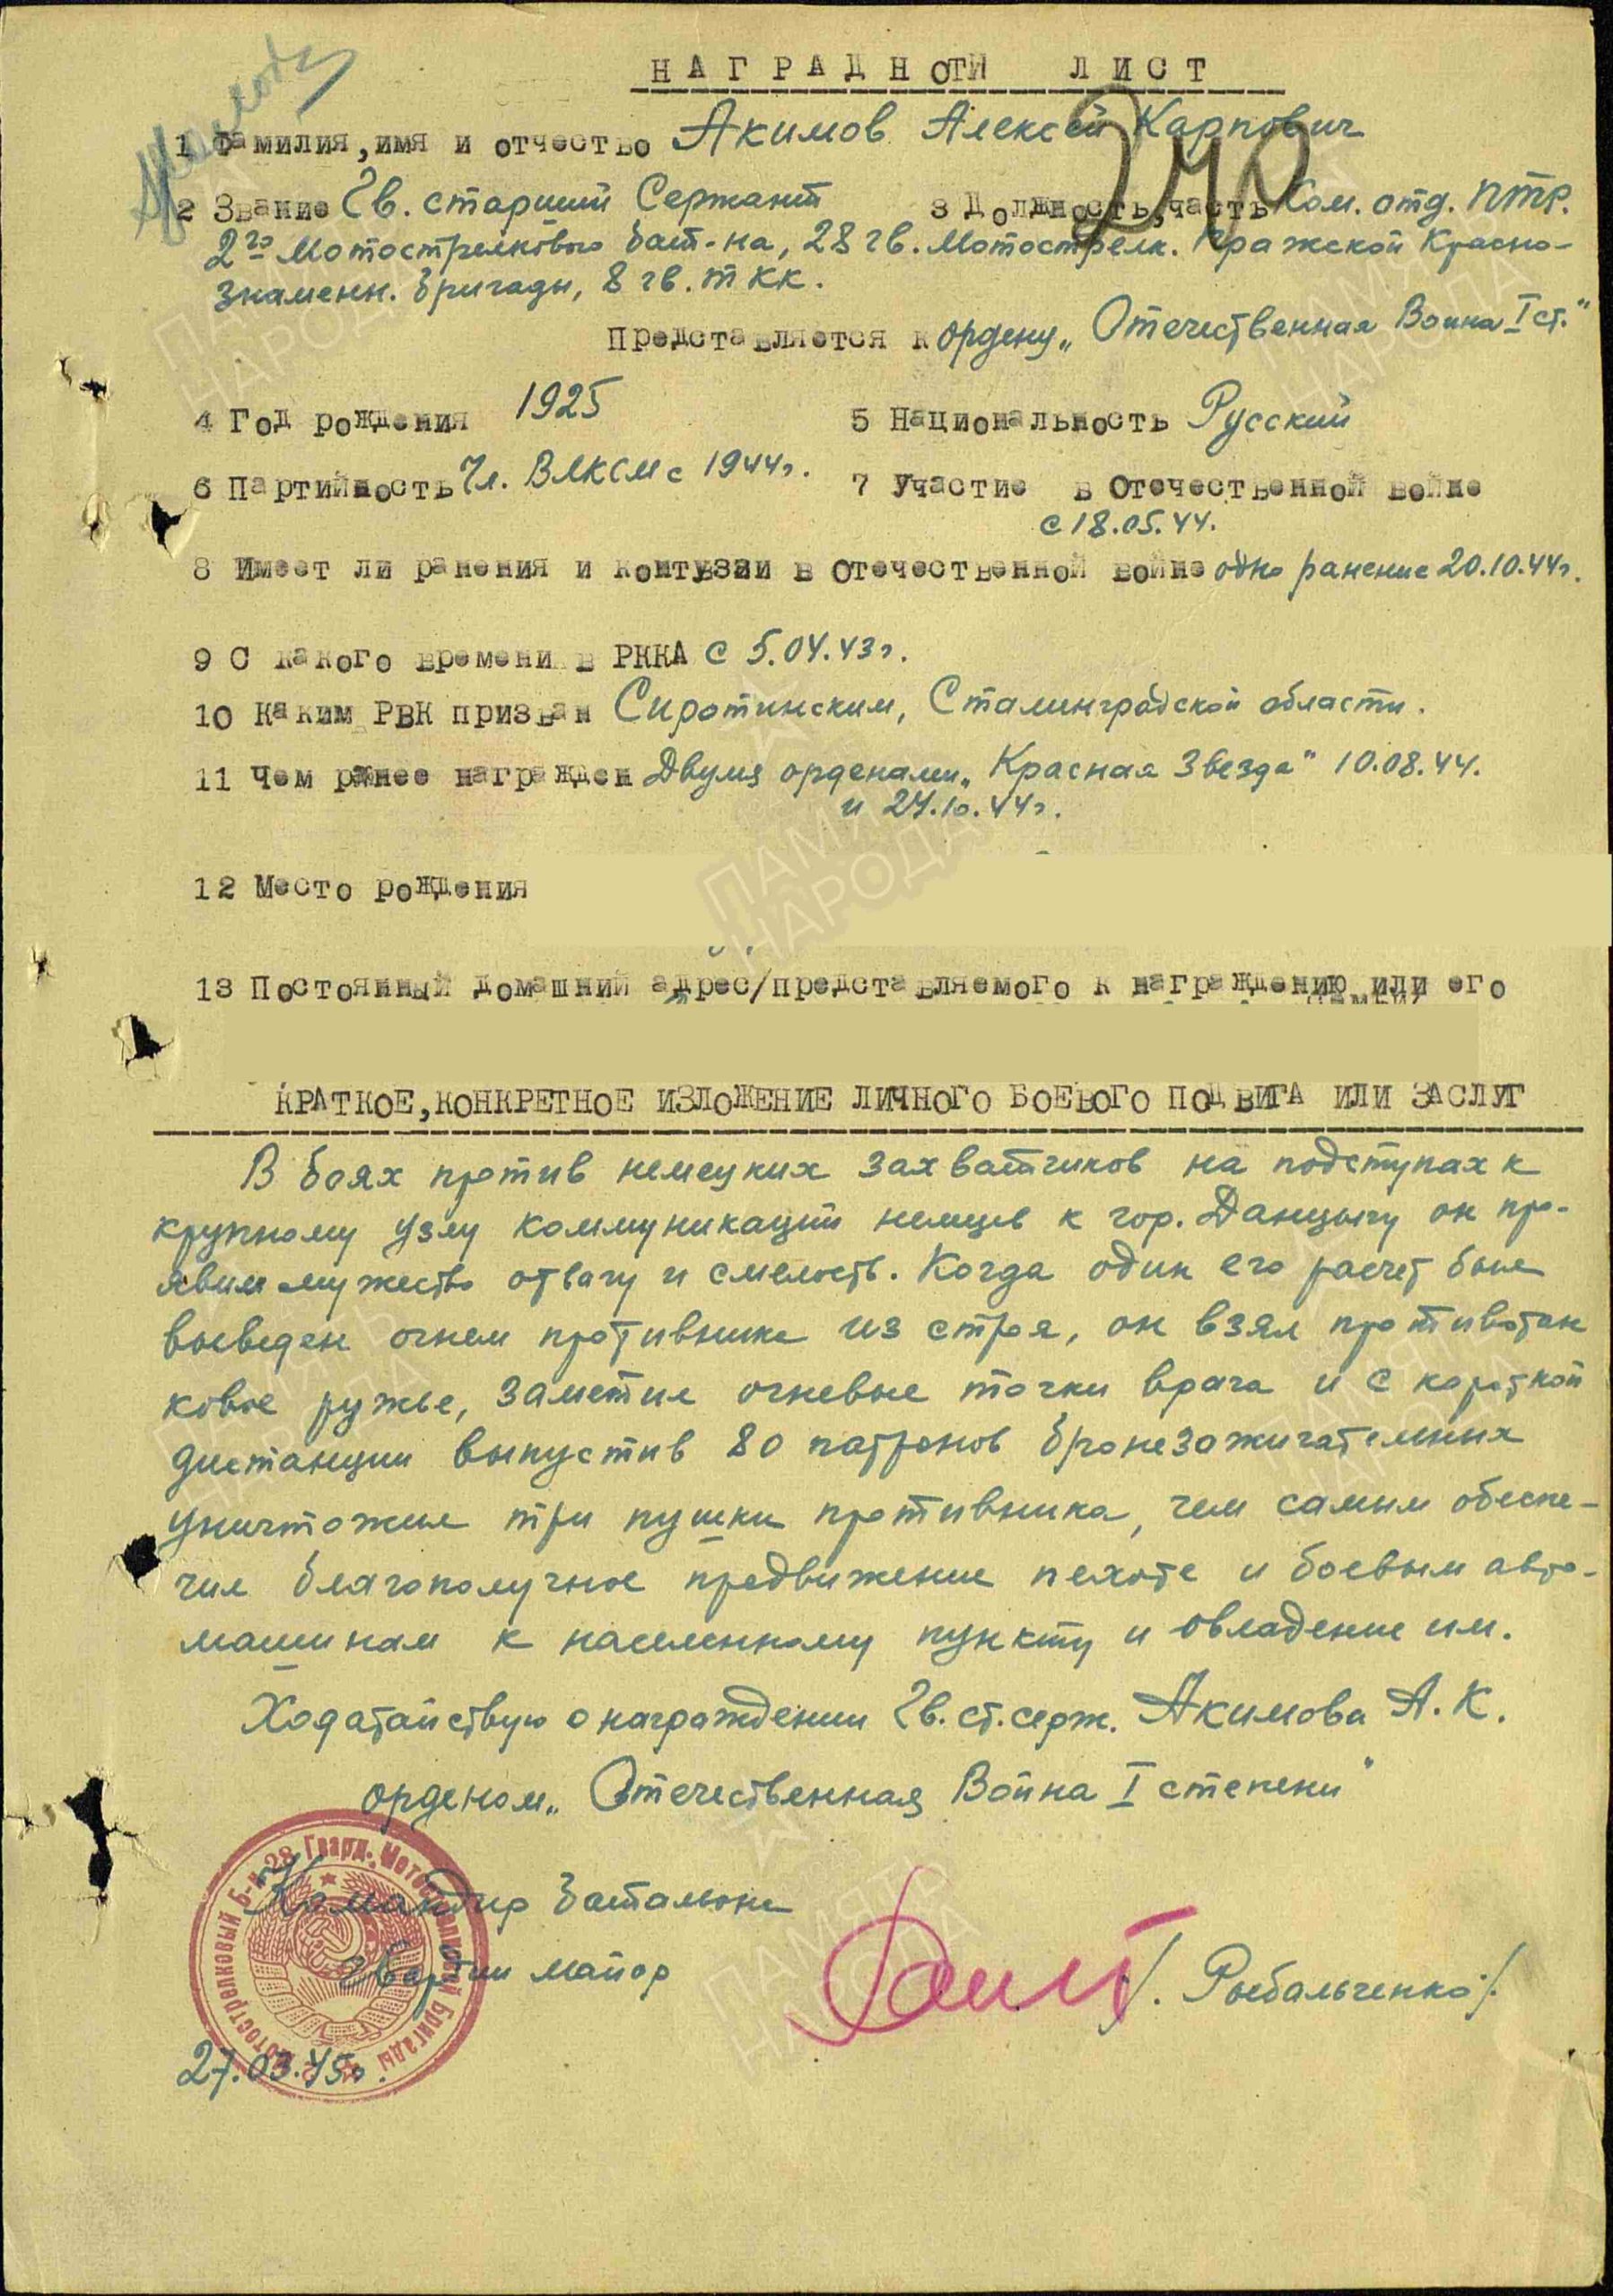 НАГРАДНОЙ ЛИСТ
240
1 Фамилия,имя и отчество Акимов Алексей Карпович
2 Звание Гв. старший Сержант 3 Должность,часть Ком. отд. ПТР.
2го Мотострелкового бат-на, 28 гв. Мотострелк. Пражской Красно-
знаменн. бригады, 8 гв. ткк.
Представляется к ордену „Отечественная Война I ст."
4 Год рождения 1925 5 Национальность Русский
6 Партийность Чл. ВЛКСМ с 1944г. 7 Участие в Отечественной войне
с 18.05.44.
8 Имеет ли ранения и контузии в отечественной войне одно ранение 20.10.44г.
9 С какого времени в РККА с 5.04.43г.
10 Каким РВК призван Сиротинским, Сталинградской области.
11 Чем ранее награжден Двумя орденами „Красная Звезда" 10.08.44.
и 24.10.44г.
12 Место рождения
13 Постоянный домашний адрес/представляемого к награждению или его
КРАТКОЕ,КОНКРЕТНОЕ ИЗЛОЖЕНИЕ ЛИЧНОГО БОЕВОГО ПОДВИГА ИЛИ ЗАСЛУГ
В боях против немецких захватчиков на подступах к
крупному узлу коммуникаций немцев к гор. Данцигу он про-
явил мужество отвагу и смелость. Когда один его расчет был
выведен огнем противника из строя, он взял противотан
ковое ружье, заметил огневые точки врага и с короткой
дистанции выпустив 80 патронов бронезажигательных
уничтожил три пушки противника, чем самым обеспе-
чил благополучное предвижение пехоте и боевым авто-
машинам к населенному пункту и овладение им.
Ходатайствую о награждении Гв. ст. серж. Акимова А.К.
орденом „Отечественная Война I степени"
Командир батальона
гвардии майор /. Рыбальченко /.
27.03.45г.
Мотострелковый Б-н 28 Гвард. Мотострелковой Бригады
ПАМЯТЬ НАРОДА